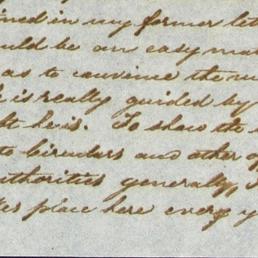 ined in my former let
uld be an easy mat
as to convince the
is really guided by
he is. To show the
to Circulars and other of
uthorities generally,
es place here every y